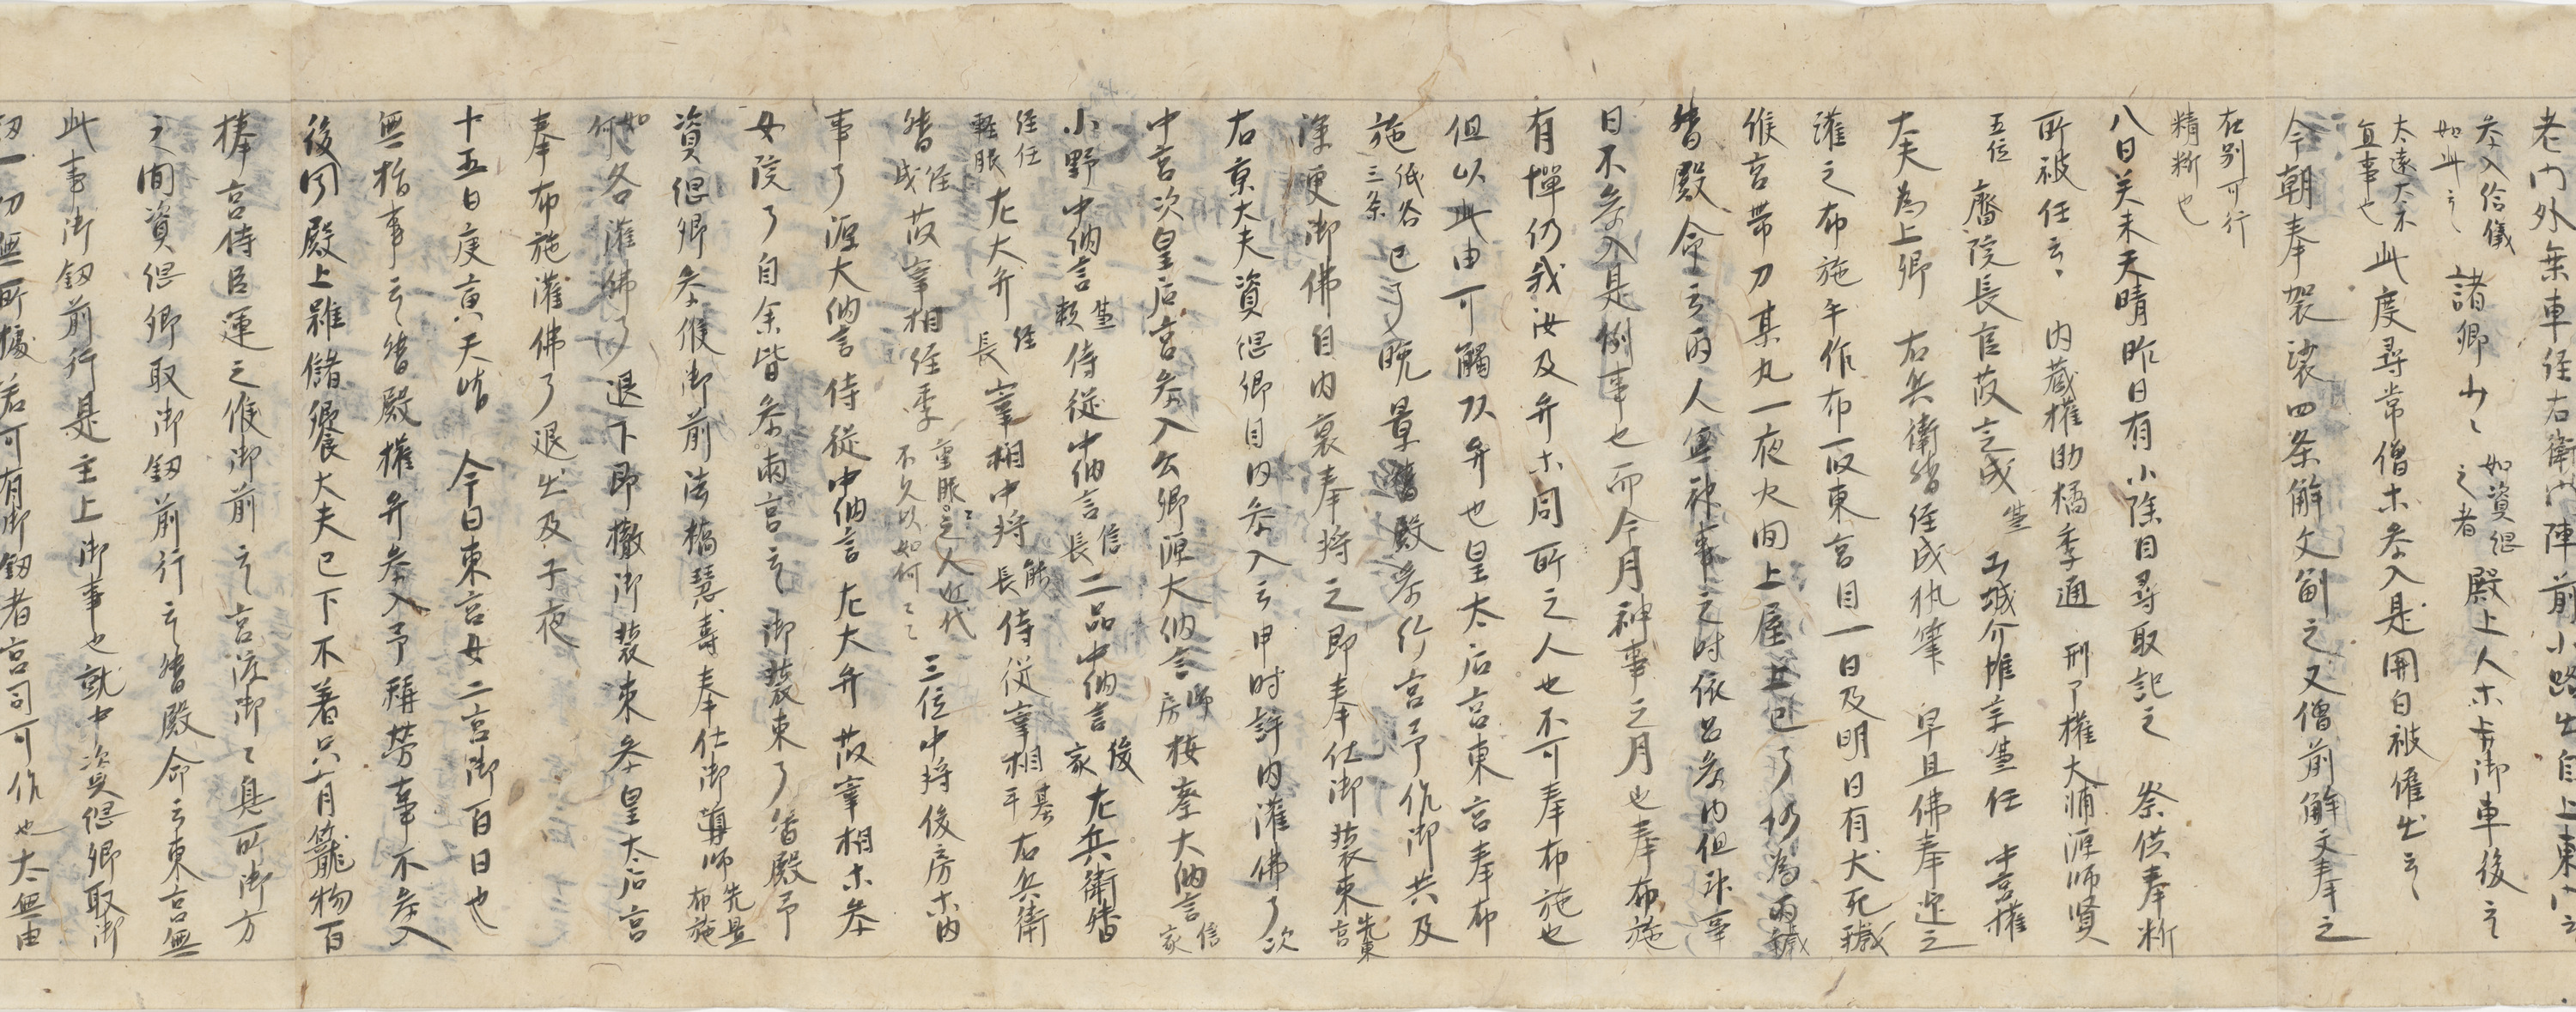 老門外乗車経右衛門陣前小路出自上東門之
参入給儀如此云々諸卿少々如資綱之者殿上人等御車後云々
太遠太不宜事也此度尋常僧等参入是関白被催出云々
今朝奉袈裟四条解文副之又僧前解文奉之
在別可行精料也
八日癸未天晴昨日有小除目尋取記之 祭供奉料
所被任云々 内蔵権助橘季通 刑部権大輔源師賢
五位 斎院長官 山城介惟宗 任 中宮権
大夫為上卿 右兵衛督経成執筆 早旦佛奉迎之
灌之布施午作布一段東宮自一日及明日有犬死穢
候宮帯刀某丸一夜欠間上屋 已了仍為丙穢
督殿命云両人寅神事之時依召参内但非事
日不参入是例事也而今月神事之月也奉布施
有憚仍我汝及弁等同所之人也不可奉布施也
但以此由可觸双弁也皇太后宮東宮奉布
施紙各三条已了晩景督殿参給宮予仇御共及
深更御佛自内裏奉将之即奉仕御装束先東宮
右京大夫資綱卿自内参入云申時許内灌佛了次
中宮次皇后宮参入公卿源大納言師房按察大納言信家
小野中納言兼頼侍従中納言信長二品中納言俊家左兵衛督
経任軽服左大弁経長宰相中将能長侍従宰相基平右兵衛
督経成故宰相経季重服之人近代不久以如何々々三位中将俊房等内
事了源大納言侍従中納言左大弁故宰相等参
女院了自余皆参両宮云々御装束了督殿予
資綱卿参候御前法橋慧寿奉仕御導師先是布施
如何各灌佛了退下即撤御装束参皇太后宮
奉布施灌佛了退出及子夜
十五日庚寅天晴 今日東宮女二宮御百日也
無指事云々督殿権弁参入予称労事不参入
後聞殿上雖儲饗大夫已下不着只有籠物百
捧宮侍臣運之候御前云々宮渡御々息所御方
之間資綱卿取御釼前行云々督殿命云東宮無
此事御釼前行是主上御事也就中資綱卿取御
釼一切無所據若可有御釼者宮司可作也太無由